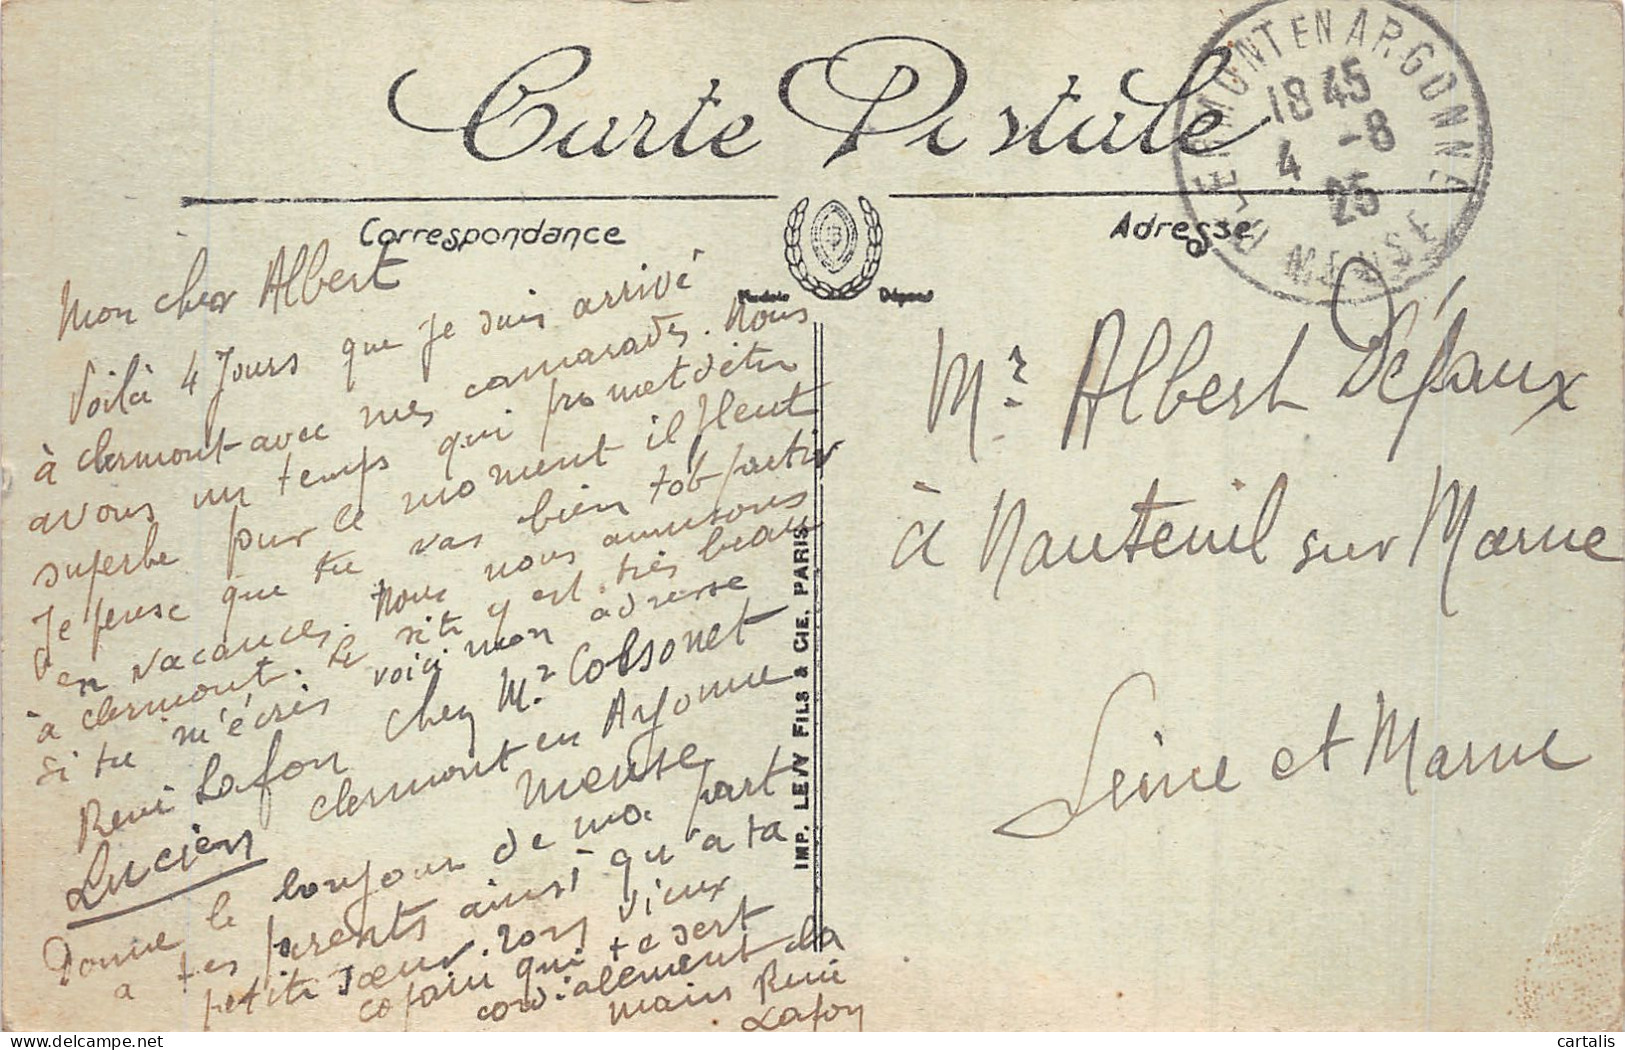 Carte Postale
CLERMONT EN ARGONNE
18 45
4 -8
25
MEUSE
Correspondance
Adresse
Modèle Déposé
Mon cher Albert
Voilà 4 Jours que Je suis arrivé
à clermont avec mes camarades. Nous
avons un temps qui promet d'être
superbe pour le moment il pleut
Je pense que tu vas bientôt partir
en vacances. Nous nous amusons
à clermont. Le site y est très beau
si tu m'écris voici mon adresse
René Lafon chez Mr Colsonet
Lucien clermont en Argonne
Meuse
Donne le bonjour de ma part
a tes parents ainsi qu'a ta
petite sœur. Ton vieux
copain qui te sert
cordialement la
main René
Lafon
IMP. LEVY FILS & CIE. PARIS
Mr Albert Défaux
à Nauteuil sur Marne
Seine et Marne
cartalis